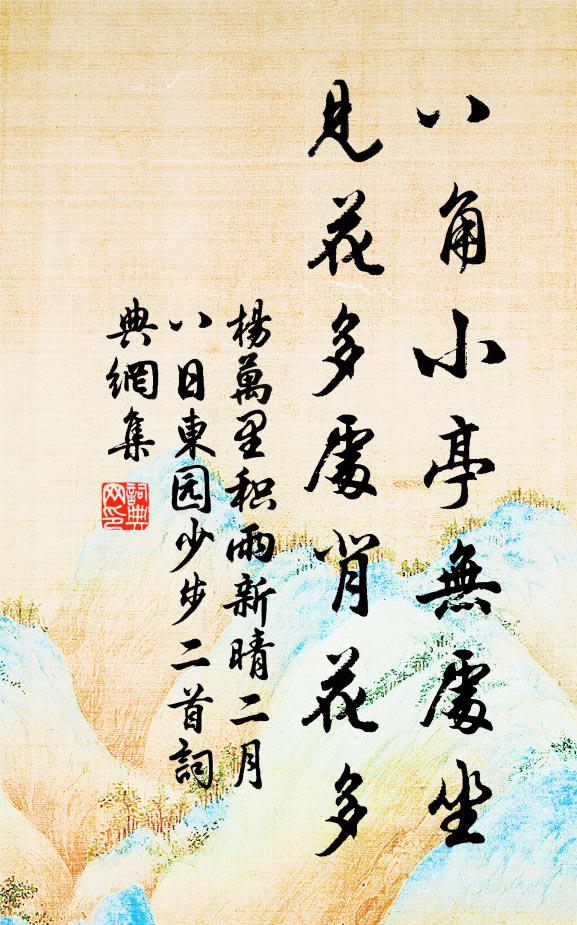 八角小亭無處坐
見花多處背花多
楊萬里积雨新晴二月
八日東园少步二首詞
典網集
詞典
网印